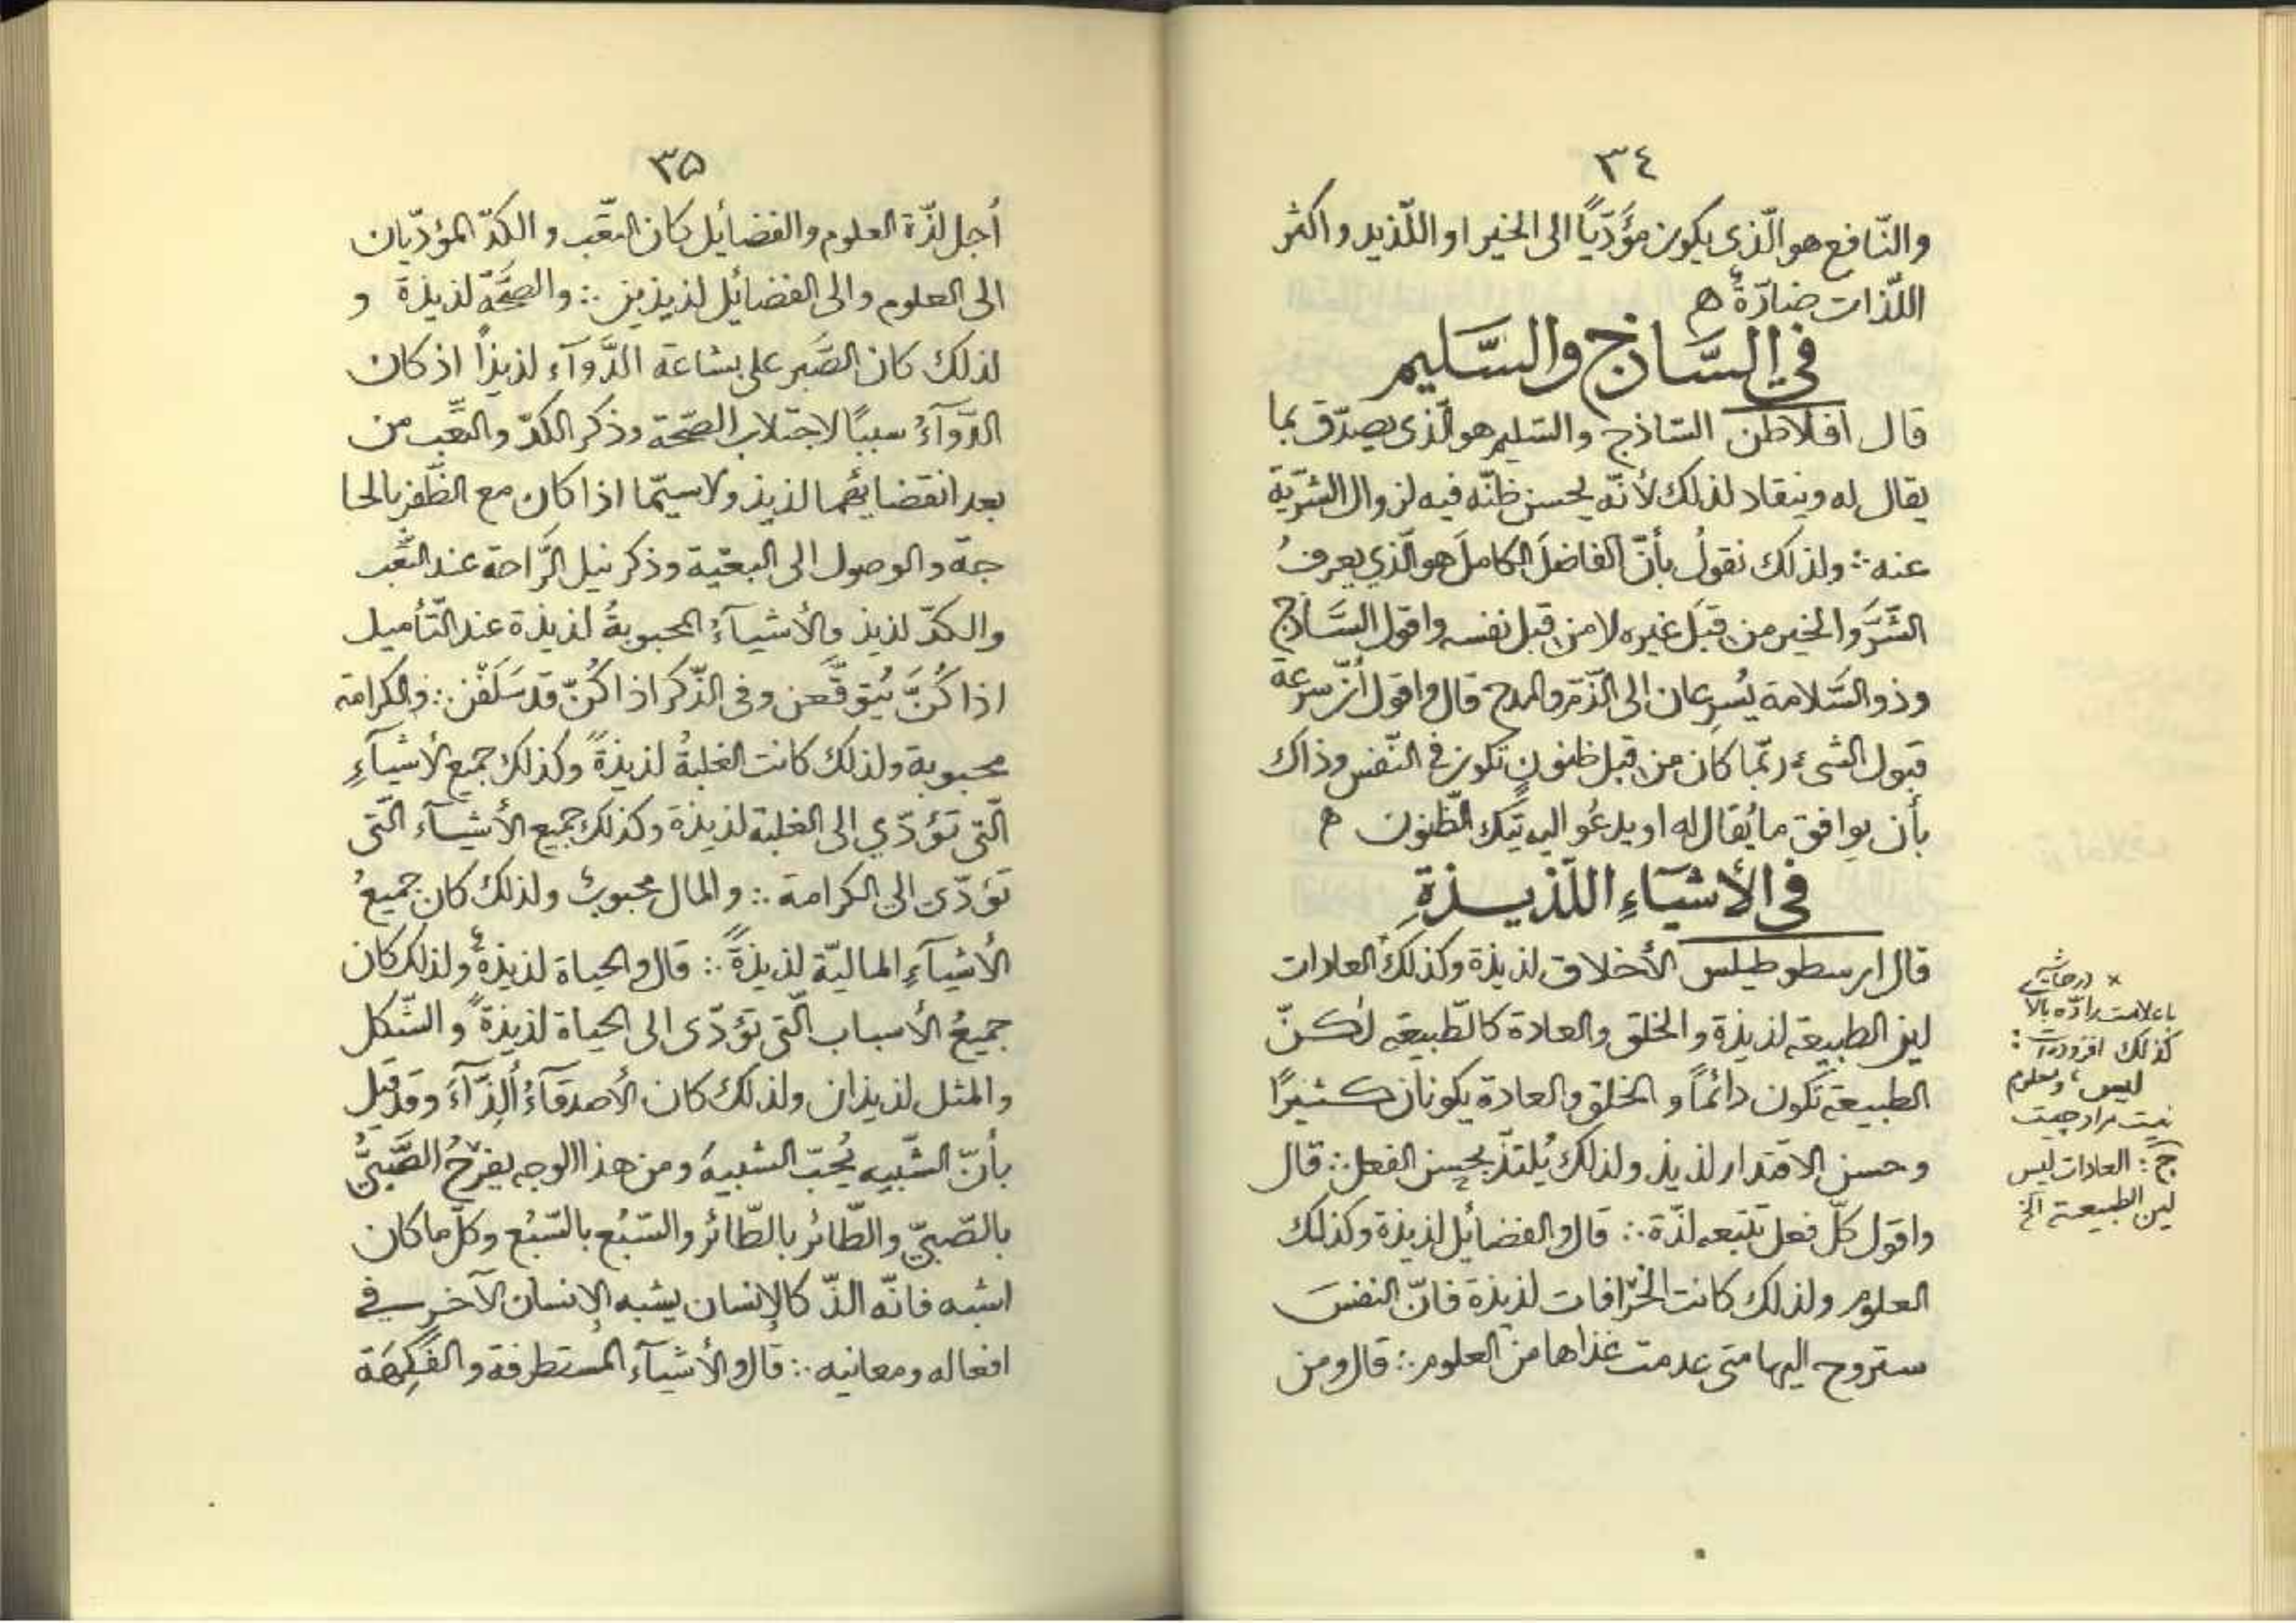 ٣٤
والنّافع هو الّذى يكون مؤَدّيًا الى الخير او اللّذيذ واكثر
اللّذات ضارّةٌ ه
في السَّاذج والسَّليم
قال افلاطن السّاذج والسّليم هو الّذى يصدّق بما
يقال له وينقاد لذلك لأنّه يحسن ظنّه فيه لزوال الشّرّيّة
عنه ∴ ولذلك نقولُ بأنّ الفاضلَ الكاملَ هو الّذي يعرفُ
الشَّرَّ والخير من قبَل غيره لا من قبل نفسه واقول السَّاذج
وذو السَّلامة يُسرعان الى الذّمّ والمدح قال واقول انّ سرعة
قبول الشىء ربّما كان من قبل ظنونٍ تكون في النّفس وذاك
بأن يوافق ما يُقال له او يدعُو اليه تيك الظّنون ه
فى الأشيَآءِ اللّذيـذةِ
قال ارسطوطيلس الأخلاق لذيذة وكذلك× العادات
لين الطبيعة لذيذة والخلق والعادة كالطّبيعة لٰكـنّ
الطبيعة تكون دائمًا والخلق والعادة يكونان كـثيرًا
وحسن الاقتدار لذيذ ولذلك يُلتذّ بحسن الفعل ∴ قال
واقول كلّ فعل تتبعه لذّة ∴ قال والفضائل لذيذة وكذلك
العلوم ولذلك كانت الخرّافات لذيذة فانّ النفسَ
ستروح اليها متى عدمت غذاها من العلوم ∴ قال ومن
× در حاشيه
با علامت راده بالا
كذلك افزوده‌است:
ليس، ومعلوم
نيست مراد چيست
ج: العادات ليس
لين الطبيعة الخ
٣۵
أجل لذّة العلوم والفضايل كان التّعَب والكدّ المؤدّيان
الى العلوم والى الفضايل لذيذين ∴ والصحَّة لذيذة و
لذلك كان الصَّبر على بشاعة الدَّوآء لذيذاً اذ كان
الدّوآءُ سببًا لاجتلاب الصّحّة وذكر الكدّ والتّعَب من
بعد انقضايئهما لذيذ ولا سيّما اذا كان مع الظّفر بالحا
جة والوصول الى البغية وذكر نيل الرَّاحة عند التّعَب
والكدّ لذيذ والأشيآءُ المحبوبةُ لذيذة عند التّأميل
اذا كُنَّ يُتوقَّعن وفى الذّكر اذا كُنّ قد سَلَفْن ∴ والكرامة
محبوبة ولذلك كانت الغلبةُ لذيذةً وكذلك جميع الأشيآءِ
الّتى تؤدّي الى الغلبة لذيذة وكذلك جميع الأشيآء الّتى
تؤدّى الى الكرامة ∴ والمال محبوبٌ ولذلك كان جميعُ
الأشيآءِ الماليّة لذيذةً ∴ قال والحياة لذيذةٌ ولذلك كان
جميعُ الأسباب الّتى تؤدّى الى الحياة لذيذةً والشّكل
والمثل لذيذان ولذلك كان الأصدقآءُ ألِذّآءَ وقد قيل
بأنّ الشّبيه يُحبّ الشبيهَ ومن هذا الوجه يفرحُ الصَّبيُّ
بالصّبيّ والطّائر بالطّائر والسّبُع بالسّبُع وكلّ ما كان
اشبه فانّه الذّ كالإنسان يشبه الإنسان الآخر في
افعاله ومعانيه ∴ قال والأشيآء المُستطرفة والفَكِهَة